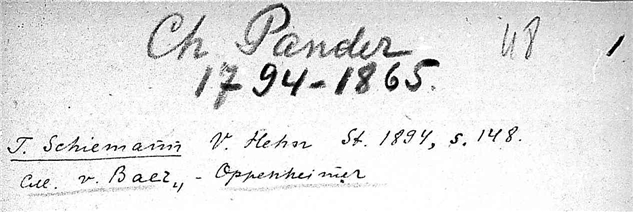 Ch Pander 48 1
1794-1865.
T. Schiemann V. Hehn St. 1894, s. 148.
См. v. Baer„ - Oppenheimer